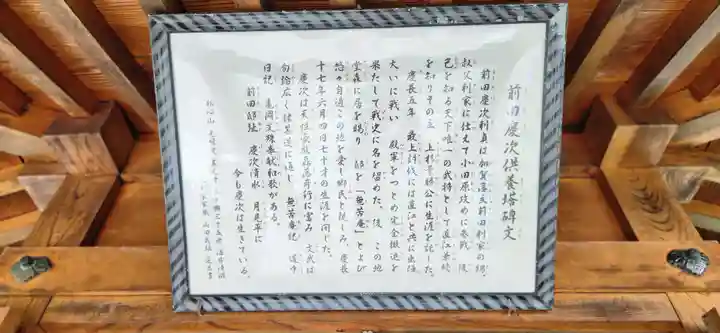 前田慶次供養塔碑文
前田慶次利貞は加賀藩主前田利家の甥、
叔父利家に仕えて小田原攻めに参戦 後
己を知る天下唯一の武将として直江兼続
を知りその主 上杉景勝公に生涯を託した。
慶長五年 最上討伐には直江と共に出陣
大いに戦い 殿軍をつとめ完全撤退を
果たして戦史に名を留めた。後 この地
堂森に居を賜り 邸を「無苦庵」とよび
悠々自適この地を愛し郷民と親しみ、慶長
十七年六月四日七十才の生涯を閉じた。
慶次は天性豪放磊落奇行に富み 文武は
勿論広く諸芸道に通じ 無苦庵記 道中
日記 亀岡文殊奉献和歌がある。
前田邸址 慶次清水 月見平に
今も慶次は生きている。